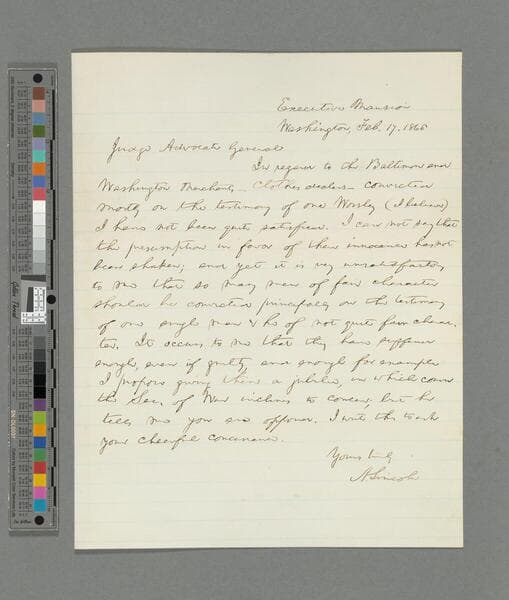 Executive Mansion
Washington, Feb. 17, 1865
Judge Advocate General
In regard to the Baltimore and
Washington Merchants — clothes dealers — convicted
mostly on the testimony of one Worsley (I believe)
I have not been quite satisfied. I can not say that
the presumption in favor of their innocence has not
been shaken; and yet it is very unsatisfactory
to me that so many men of fair character
should be convicted principally on the testimony
of one single man & he of not quite fair charac-
ter. It occurs to me that they have suffered
enough, even if guilty, and enough for example.
I propose giving them a jubilee, in which course
the Sec. of War inclines to concur, but he
tells me you are opposed. I write this to ask
your cheerful concurrence.
Yours truly
A. Lincoln